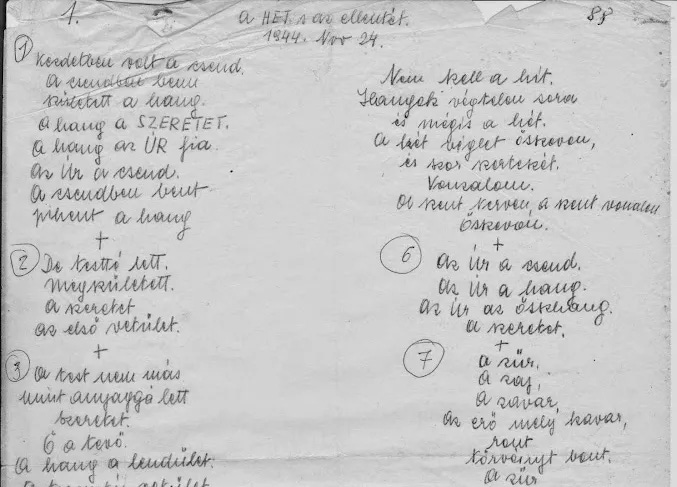 1.
A HÉT s az ellentét.
88
1944. Nov 24.
1 Kezdetben volt a csend.
A csendben benn
született a hang.
A hang a SZERETET.
A hang az ÚR fia.
Az Úr a csend.
A csendben bent
pihent a hang
+
2 De testté lett.
Megszületett.
A szeretet
az első vetület.
+
3 A test nem más
mint anyaggá lett
szeretet.
Ő a tevő.
A hang a lendület.
A
Nem kell a hit.
Hangok végtelen sora
és mégis a hét.
A hét
és szór szerteszét.
Vonzalom.
A szent
+
6 Az Úr a csend.
Az Úr a hang.
Az Úr az őszhang.
A szeretet.
+
7 A zűr,
A zaj,
A zavar,
Az erő mely kavar,
ront
törvényt bont.
A zűr